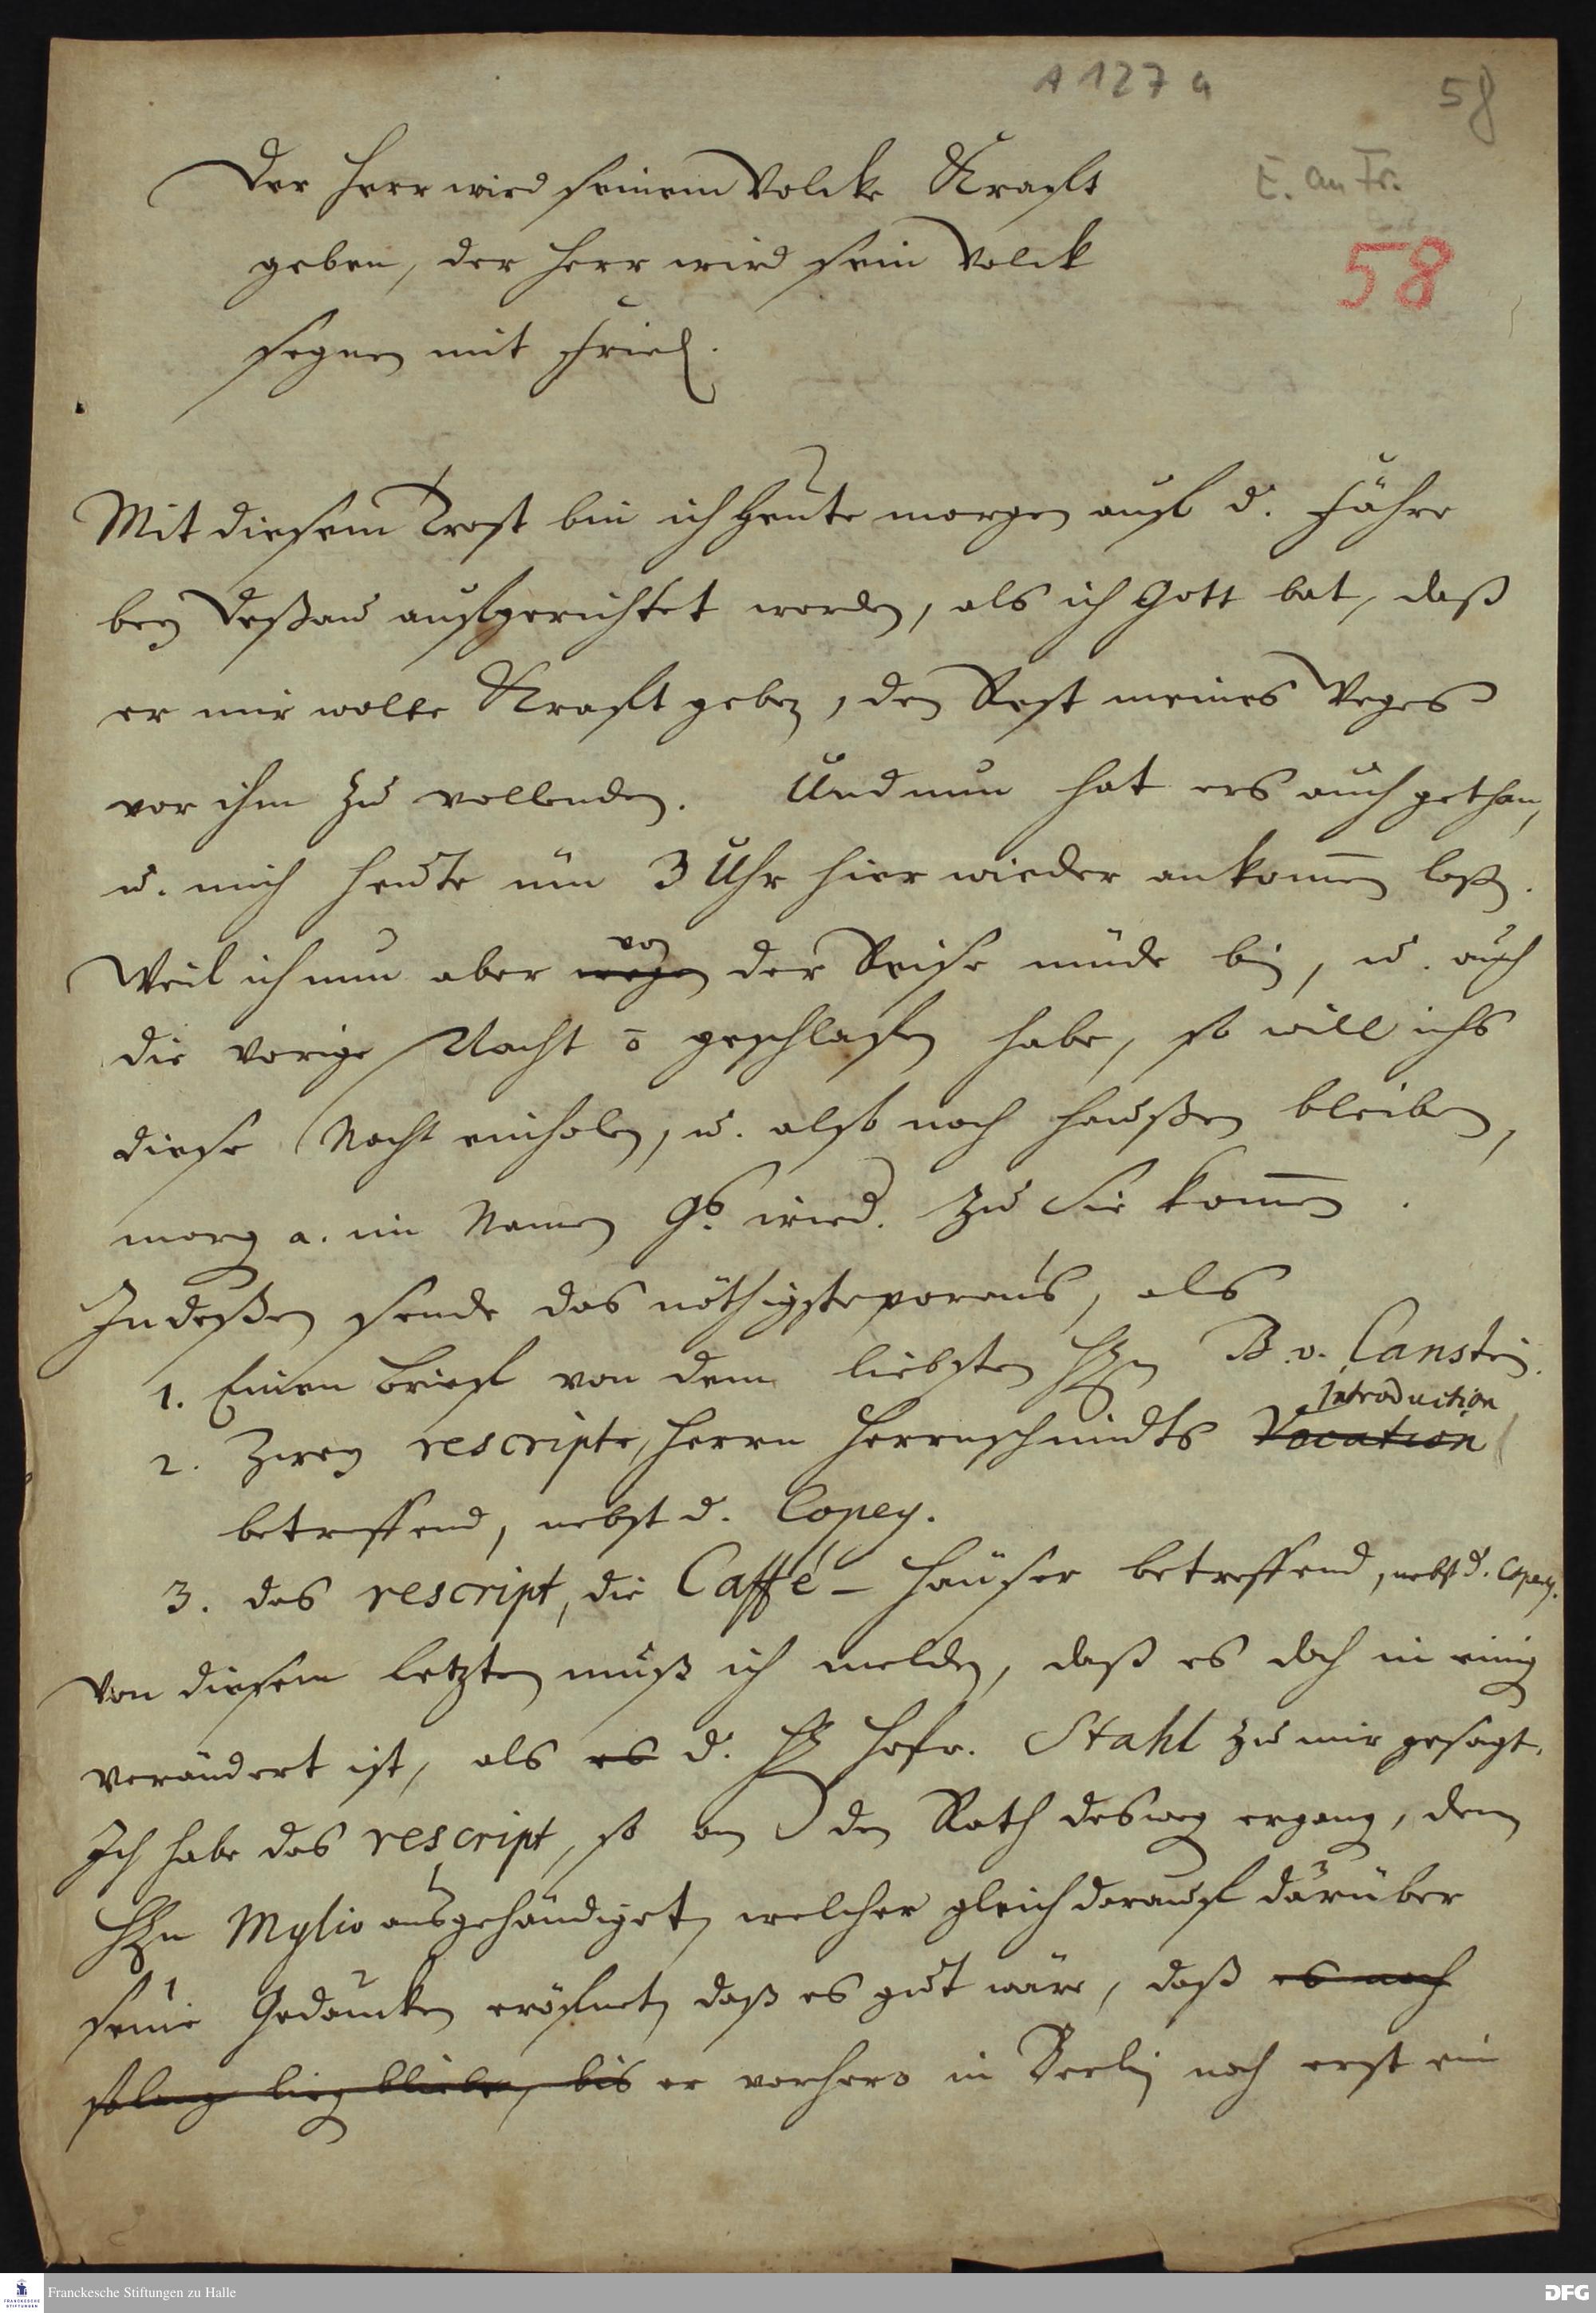 A 127 a
58
Der Herr wird seinem Volcke Krafft
E. an Fr.
geben, der Herr wird sein Volck
58
segnen mit Fried.
Mit diesem Trost bin ich heute morgen auff d. Fähre
bey Deßau auffgerichtet worden, als ich Gott bat, daß
er mir wolte Krafft geben, den Rest meines Weges
vor ihm zu vollenden. Und nun hat ers auch gethan,
u. mich heute üm 3 Uhr hier wieder ankom̅en laßen.
von
Weil ich nun aber wegen der Reise müde bin, u. auch
die vorige Nacht o̅ geschlaffen habe, so will ichs
diese Nacht einholen, u. also noch haußen bleiben,
morg a. im Namen Gs. wied. zu Sie kom̅en.
Indeßen sende das nöthigste voraus, als
1. Einen Brieff von dem liebsten HEn B. v. Canstein.
introduction
2. Zwey rescripte, Herrn Herrnschmidts Vocation
betreffend, nebst d. Copey.
3. das rescript, die Caffé-Häuser betreffend, nebst d. Copey.
Von diesem letzten muß ich melden, daß es doch in einig
verändert ist, als es d. H Hofr. Stahl zu mir gesagt.
Ich habe das rescript, so an den Rath desweg ergang, dem
HEn Mylio ausgehändiget, welcher gleich darauff darüber
seine Gedancken eröfnet, daß es gut wäre, daß es noch
solang lieg bliebe, bis er vorhero in Berlin noch erst ein
Franckesche Stiftungen zu Halle
DFG